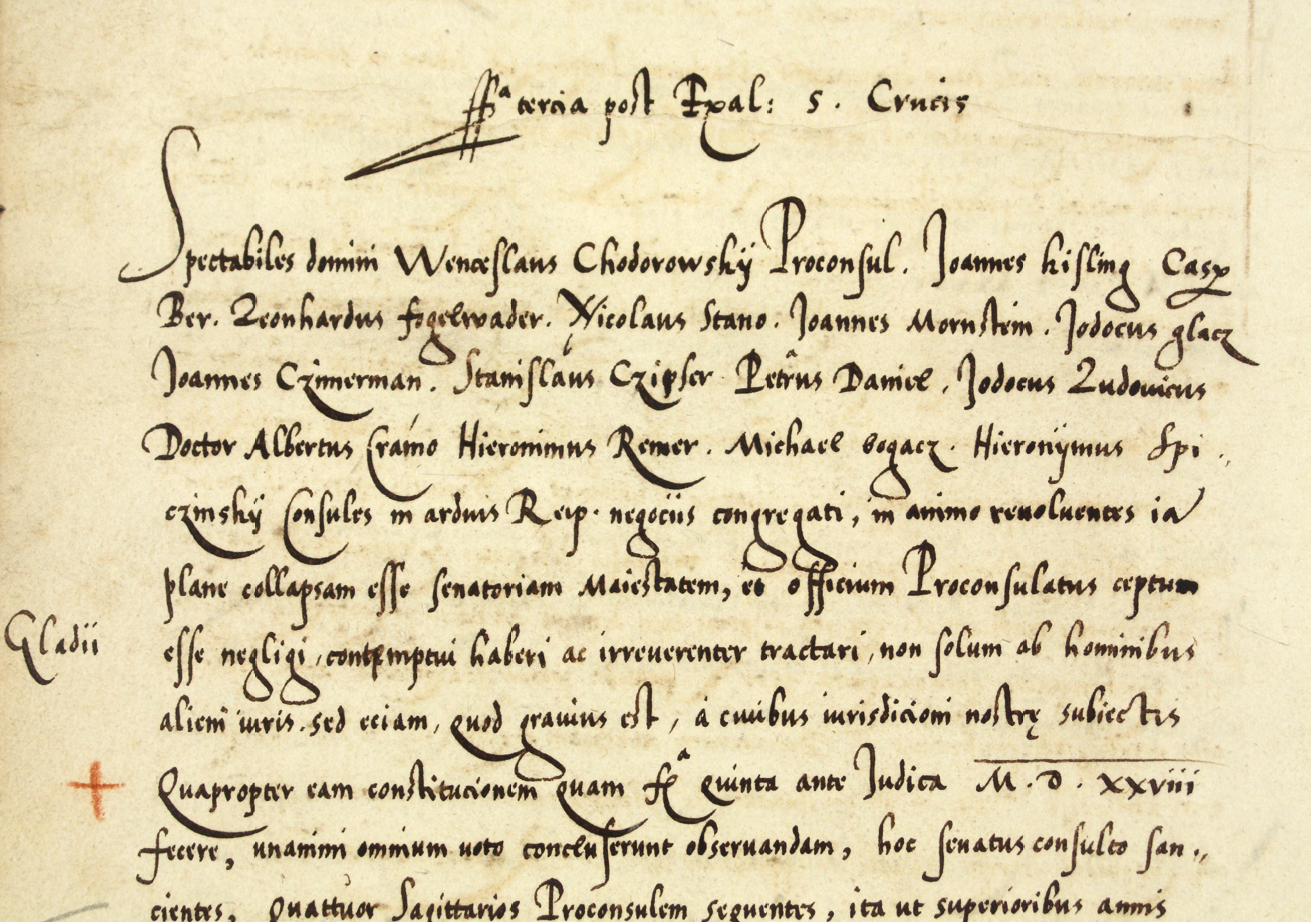 ffª tercia post Exal: S. Crucis
Spectabiles domini Wenceslaus Chodorowskÿ Proconsul. Joannes kisling Casp
Ber. Leonhardus fogelwader. Nicolaus Stano. Joannes Mornstein. Jodocus glacz
Joannes Czimerman. Stanislaus Czipser Petrus Daniel. Jodocus Ludouicus
Doctor Albertus Cramo Hieronimus Remer. Michael bogacz. Hieronÿmus Spi.,
czinskÿ Consules in arduis Reip. negociis congregati, in animo reuoluentes ia
plane collapsam esse senatoriam Maiestatem, et officium Proconsulatus ceptum
Gladii
esse negligi, contemptui haberi ac irreuerenter tractari, non solum ab hominibus
alieni iuris. sed eciam, quod grauius est, à ciuibus iurisdicioni nostrę subiectis
Quapropter eam constitucionem quam fª quinta ante Judica M.D.xxviii
fecere, unanimi omnium uoto concluserunt obseruandam, hoc senatus consulto san.,
cientes, Quattuor Sagittarios Proconsulem sequentes, ita ut superioribus annis